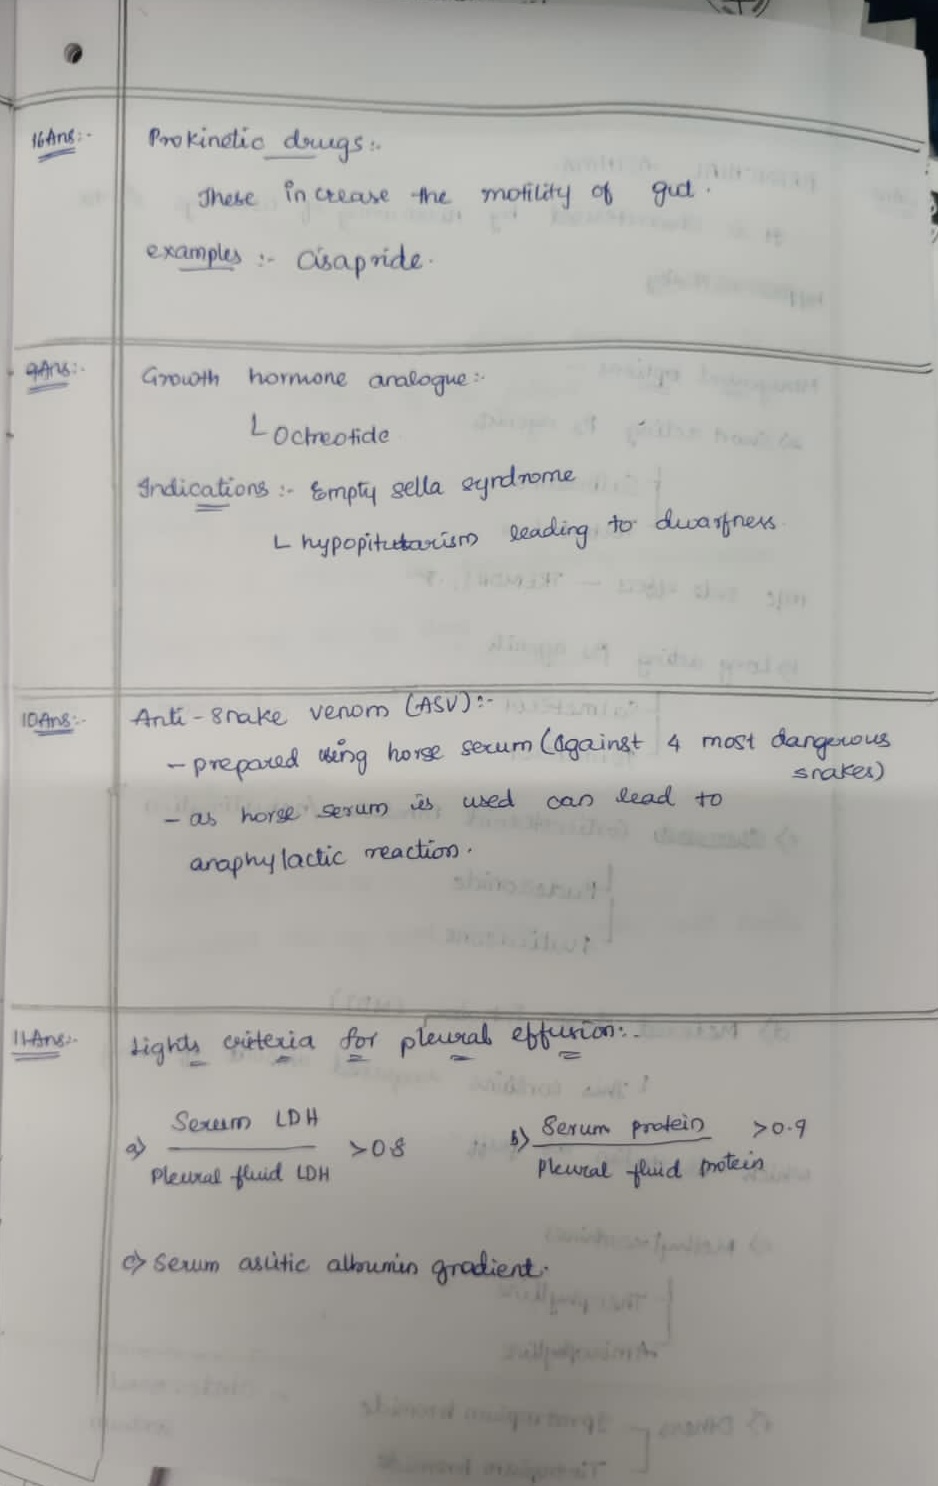 16Ans:-
Prokinetic drugs:-
These increase the motility of gut.
examples :- Cisapride.
9Ans:-
Growth hormone analogue:-
Octreotide
Indications :- Empty sella syndrome
hypopitutarism leading to dwarfness.
10Ans:-
Anti-snake venom (ASV):-
- prepared using horse serum (against 4 most dangerous
snakes)
- as horse serum is used can lead to
anaphylactic reaction.
11Ans:-
Lights criteria for pleural effusion:-
a) Serum LDH
Pleural fluid LDH
>0.8
b) Serum protein
Pleural fluid protein
>0.9
c) Serum asutic albumin gradient.